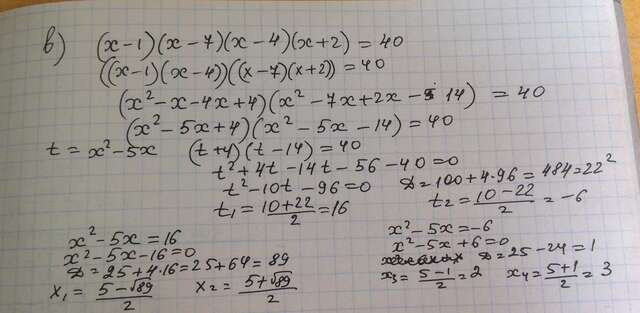 в) (x-1)(x-7)(x-4)(x+2) = 40
((x-1)(x-4))((x-7)(x+2)) = 40
(x²-x-4x+4)(x²-7x+2x-14) = 40
(x²-5x+4)(x²-5x-14) = 40
t = x²-5x (t+4)(t-14) = 40
t²+4t-14t-56-40=0
t²-10t-96=0 D=100+4·96=484=22²
t₁ = (10+22)/2 = 16 t₂ = (10-22)/2 = -6
x²-5x=16
x²-5x-16=0
D=25+4·16=25+64=89
x₁ = (5-√89)/2 x₂ = (5+√89)/2
x²-5x=-6
x²-5x+6=0
D=25-24=1
x₃ = (5-1)/2 = 2 x₄ = (5+1)/2 = 3